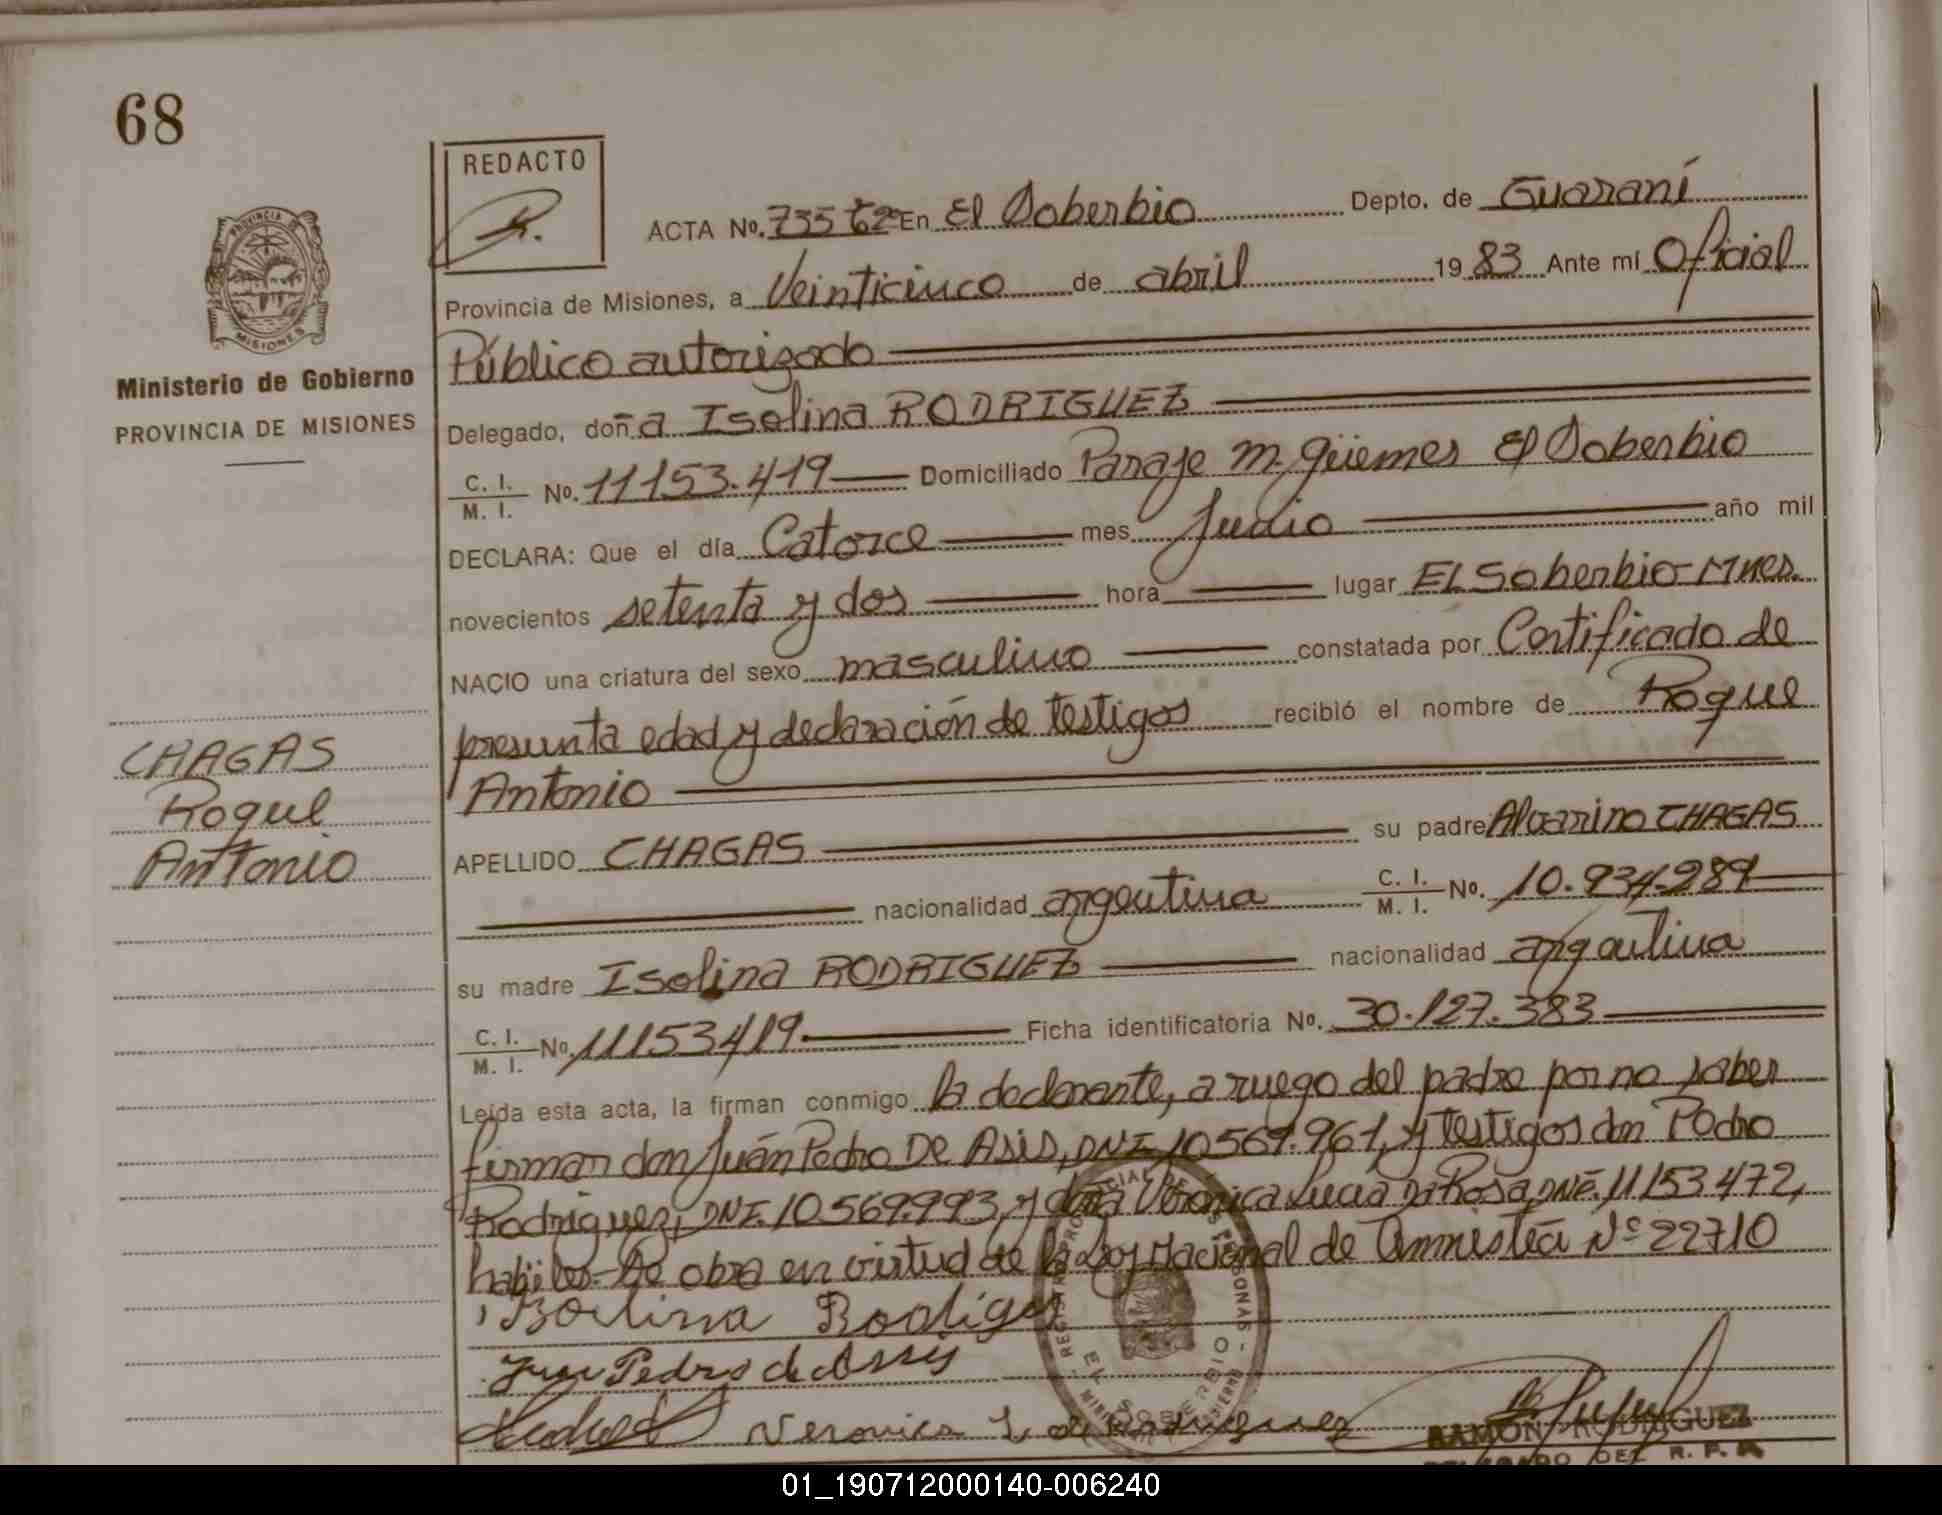 68
REDACTO
ACTA No. 735 t2º En El Soberbio Depto. de Guaraní
Provincia de Misiones, a Veinticinco de abril 1983 Ante mí Oficial
Público autorizado
Ministerio de Gobierno
PROVINCIA DE MISIONES
Delegado, doña Isolina RODRIGUEZ
C. I.
M. I. No. 11153.419 Domiciliado Paraje M. Güemes El Soberbio
DECLARA: Que el día Catorce mes Judio año mil
novecientos setenta y dos hora lugar El Soberbio-Mnes.
NACIO una criatura del sexo masculino constatada por Certificado de
presunta edad y declaración de testigos recibió el nombre de Roque
Antonio
CHAGAS
Roque
Antonio
APELLIDO CHAGAS su padre CHAGAS
nacionalidad argentina C. I.
M. I. No. 10.934.289
su madre Isolina RODRIGUEZ nacionalidad argentina
C. I.
M. I. No. 11153419 Ficha identificatoria No. 30.127.383
Leída esta acta, la firman conmigo la declarante, a ruego del padre por no saber
firmar don Juán Pedro DE ASIS, DNI 10569.961, y testigos don Pedro
Rodriguez, DNI. 10569.993, y doña Verónica Lucia Da Rosa, DNI. 11153472,
habiles- Se obra en virtud de la Ley Nacional de Amnistía Nº 22710
Juan Pedro de Assis
Veronica L de Rodriguez
RAMON RODRIGUEZ
DELEGADO DEL R. P. P.
PROVINCIA DE MISIONES
EL SOBERBIO
01_190712000140-006240